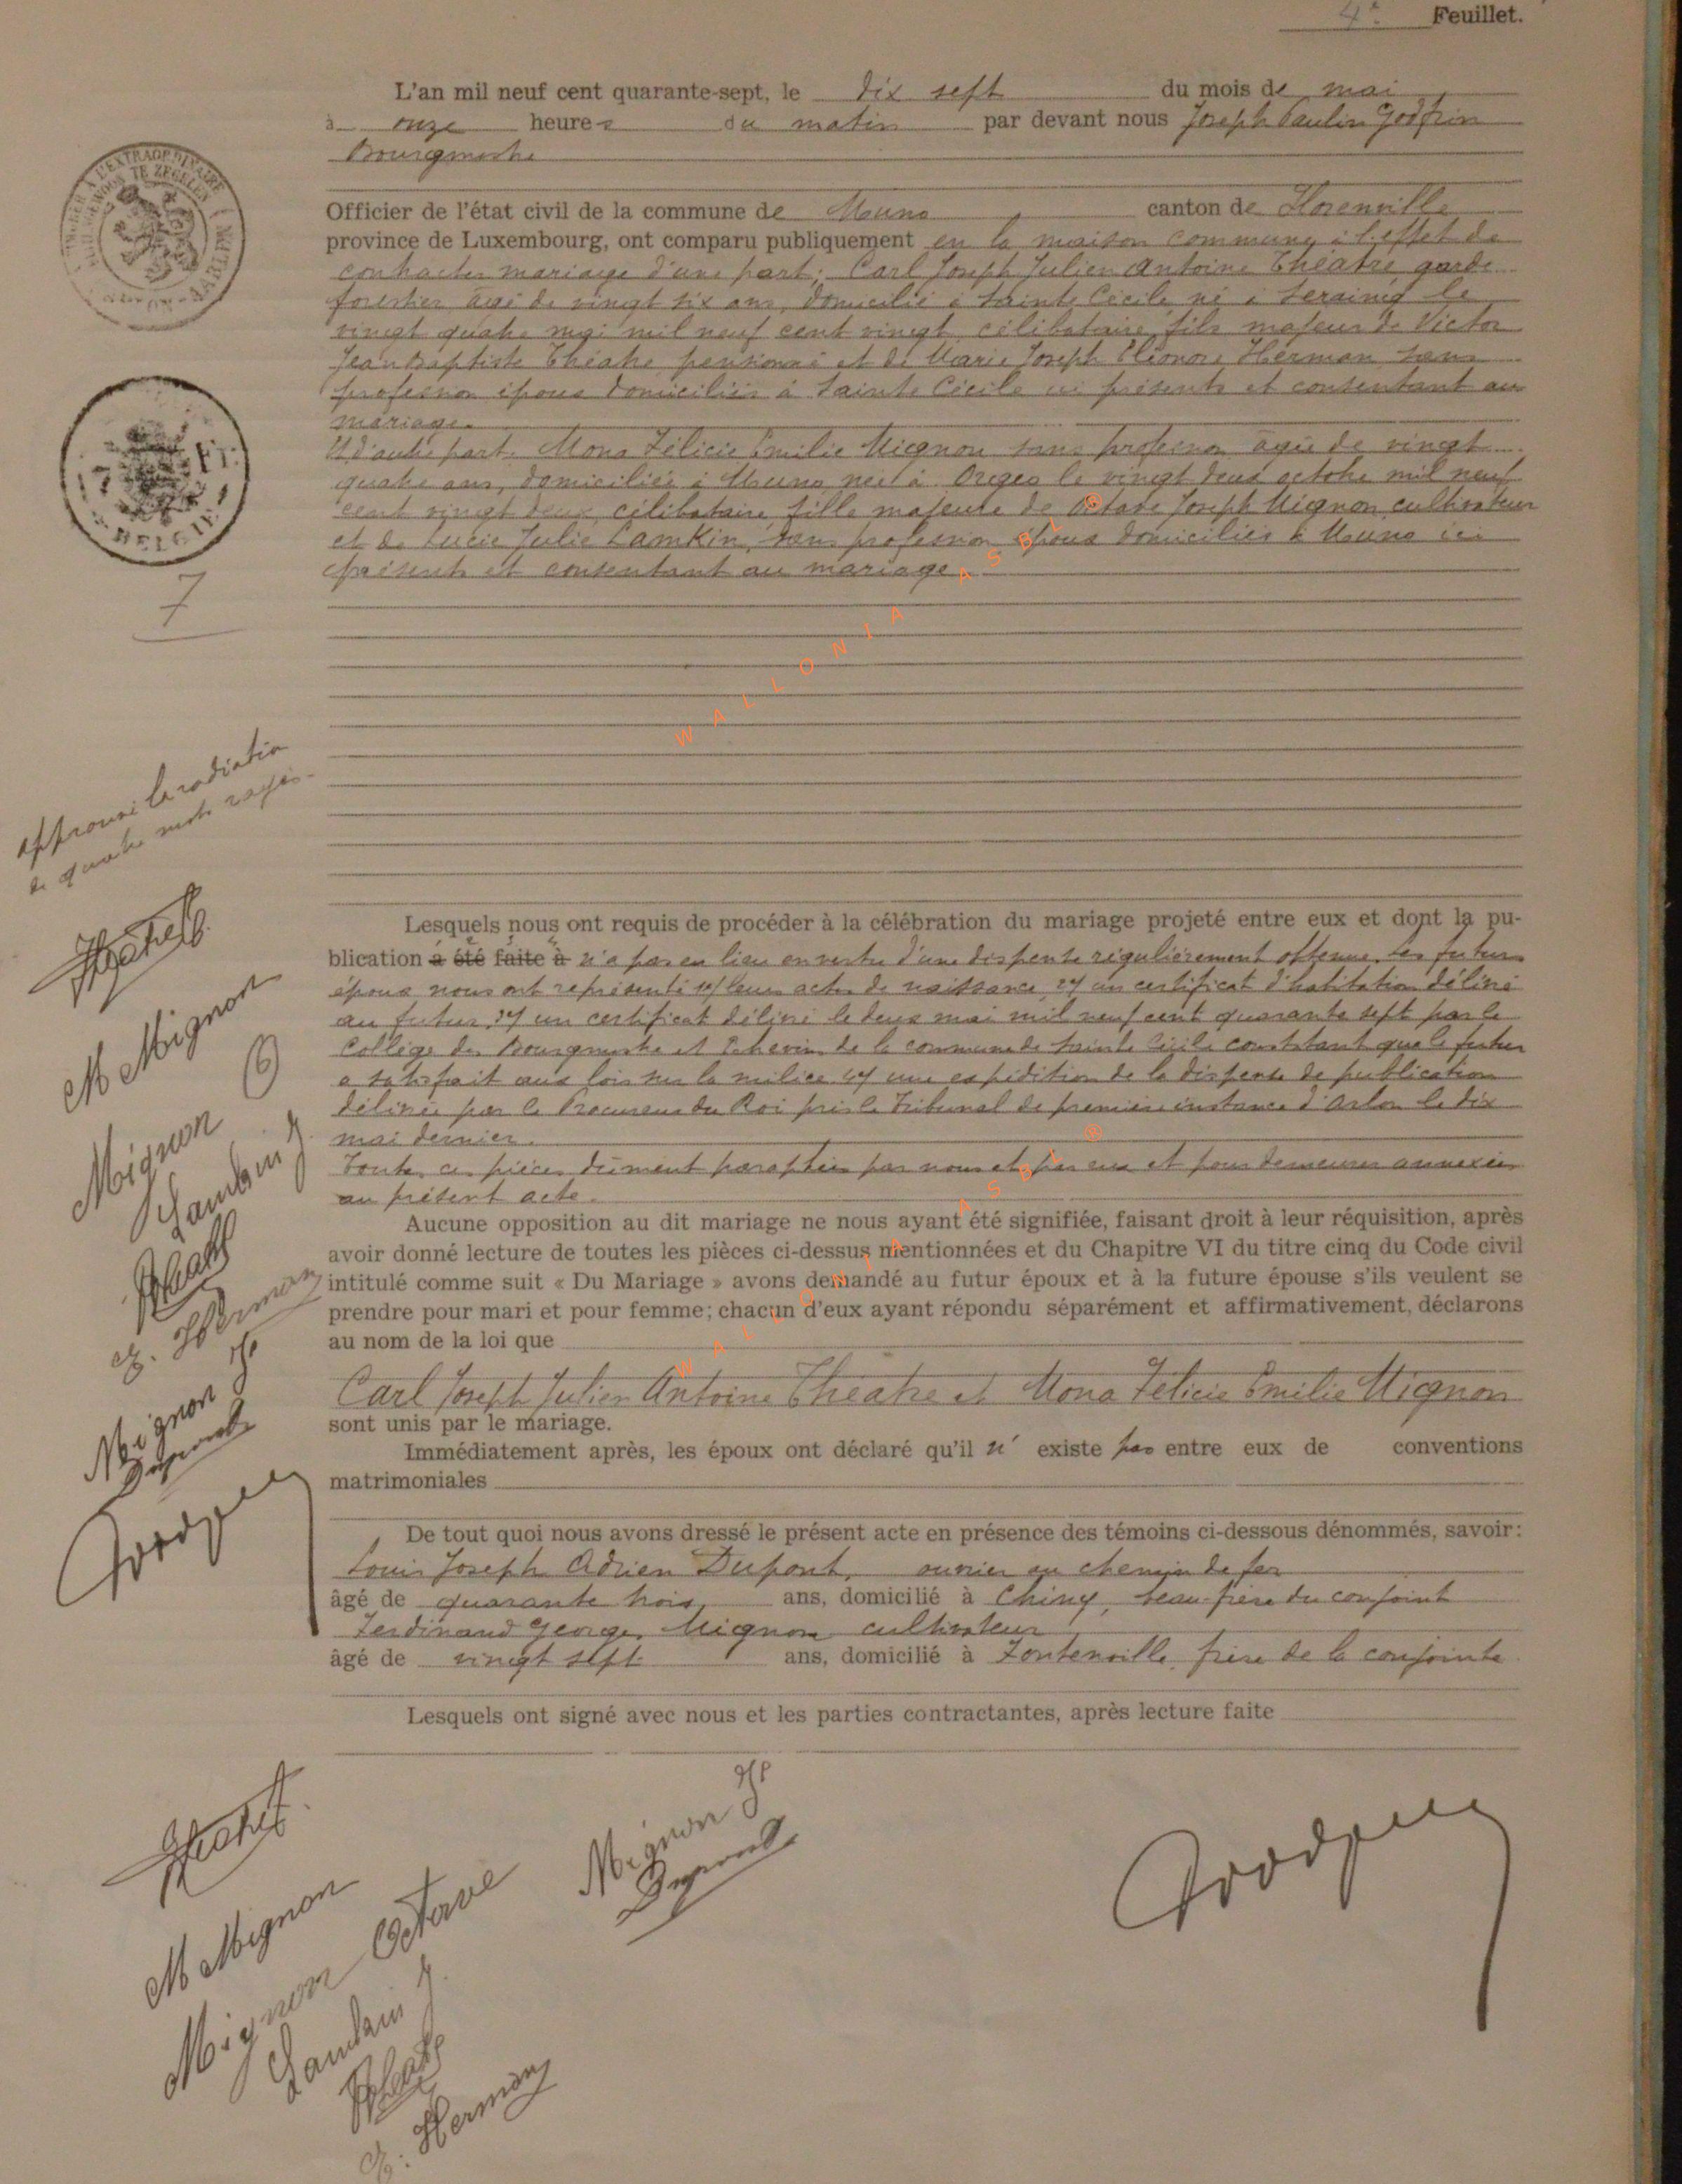 4e Feuillet.
L'an mil neuf cent quarante-sept, le dix sept du mois de mai
à onze heures du matin par devant nous Joseph Paulin Godfrin
Bourgmestre
Officier de l'état civil de la commune de Muno canton de Florenville
province de Luxembourg, ont comparu publiquement en la maison commune, à l'effet de
contracter mariage d'une part: Carl Joseph Julien Antoine Théatre garde
forestier âgé de vingt six ans, domicilié à Sainte Cécile né à Seraing le
vingt quatre mai mil neuf cent vingt célibataire, fils majeur de Victor
Jean Baptiste Théatre pensionné et de Marie Joseph Eléonore Herman sans
profession époux domiciliés à Sainte Cécile ici présents et consentant au
mariage.
Et d'autre part. Mona Félicie Emilie Mignon sans profession âgée de vingt
quatre ans, domiciliée à Muno née à Orgeo le vingt deux octobre mil neuf
cent vingt deux, célibataire, fille majeure de Octave Joseph Mignon cultivateur
et de Lucie Julie Lamkin, sans profession époux domiciliés à Muno ici
présents et consentant au mariage.
WALLONIA ASBL ®
7 Fr.
BELGIE
7
approuvé la radiation
de quatre mots rayés.
Lesquels nous ont requis de procéder à la célébration du mariage projeté entre eux et dont la pu-
blication a été faite à n'a pas eu lieu en vertu d'une dispense régulièrement obtenue. Les futurs
époux nous ont représenté 1°/ leurs actes de naissance, 2°/ un certificat d'habitation délivré
au futur, 3°/ un certificat délivré le deux mai mil neuf cent quarante sept par le
Collège des Bourgmestre et Echevins de la commune de Sainte Cécile constatant que le futur
a satisfait aux lois sur la milice 4°/ une expédition de la dispense de publication
délivrée par le Procureur du Roi près le Tribunal de première instance d'Arlon le dix
mai dernier.
Toutes ces pièces dûment paraphées par nous et par eux et pour demeurer annexées
au présent acte.
WALLONIA ASBL ®
M Mignon
Mignon O
Lamkin J.
E. Herman
Mignon
Dupont
Godfrin
Aucune opposition au dit mariage ne nous ayant été signifiée, faisant droit à leur réquisition, après
avoir donné lecture de toutes les pièces ci-dessus mentionnées et du Chapitre VI du titre cinq du Code civil
intitulé comme suit « Du Mariage » avons demandé au futur époux et à la future épouse s'ils veulent se
prendre pour mari et pour femme; chacun d'eux ayant répondu séparément et affirmativement, déclarons
au nom de la loi que
Carl Joseph Julien Antoine Théatre et Mona Félicie Emilie Mignon
sont unis par le mariage.
Immédiatement après, les époux ont déclaré qu'il n' existe pas entre eux de conventions
matrimoniales
De tout quoi nous avons dressé le présent acte en présence des témoins ci-dessous dénommés, savoir:
Louis Joseph Adrien Dupont, ouvrier au chemin de fer
âgé de quarante trois ans, domicilié à Chiny, beau-frère du conjoint
Ferdinand George Mignon cultivateur
âgé de vingt sept ans, domicilié à Fontenoille, frère de la conjointe
Lesquels ont signé avec nous et les parties contractantes, après lecture faite
M Mignon
Mignon Octave
Lamkin J.
E. Herman
Mignon
Dupont
Godfrin